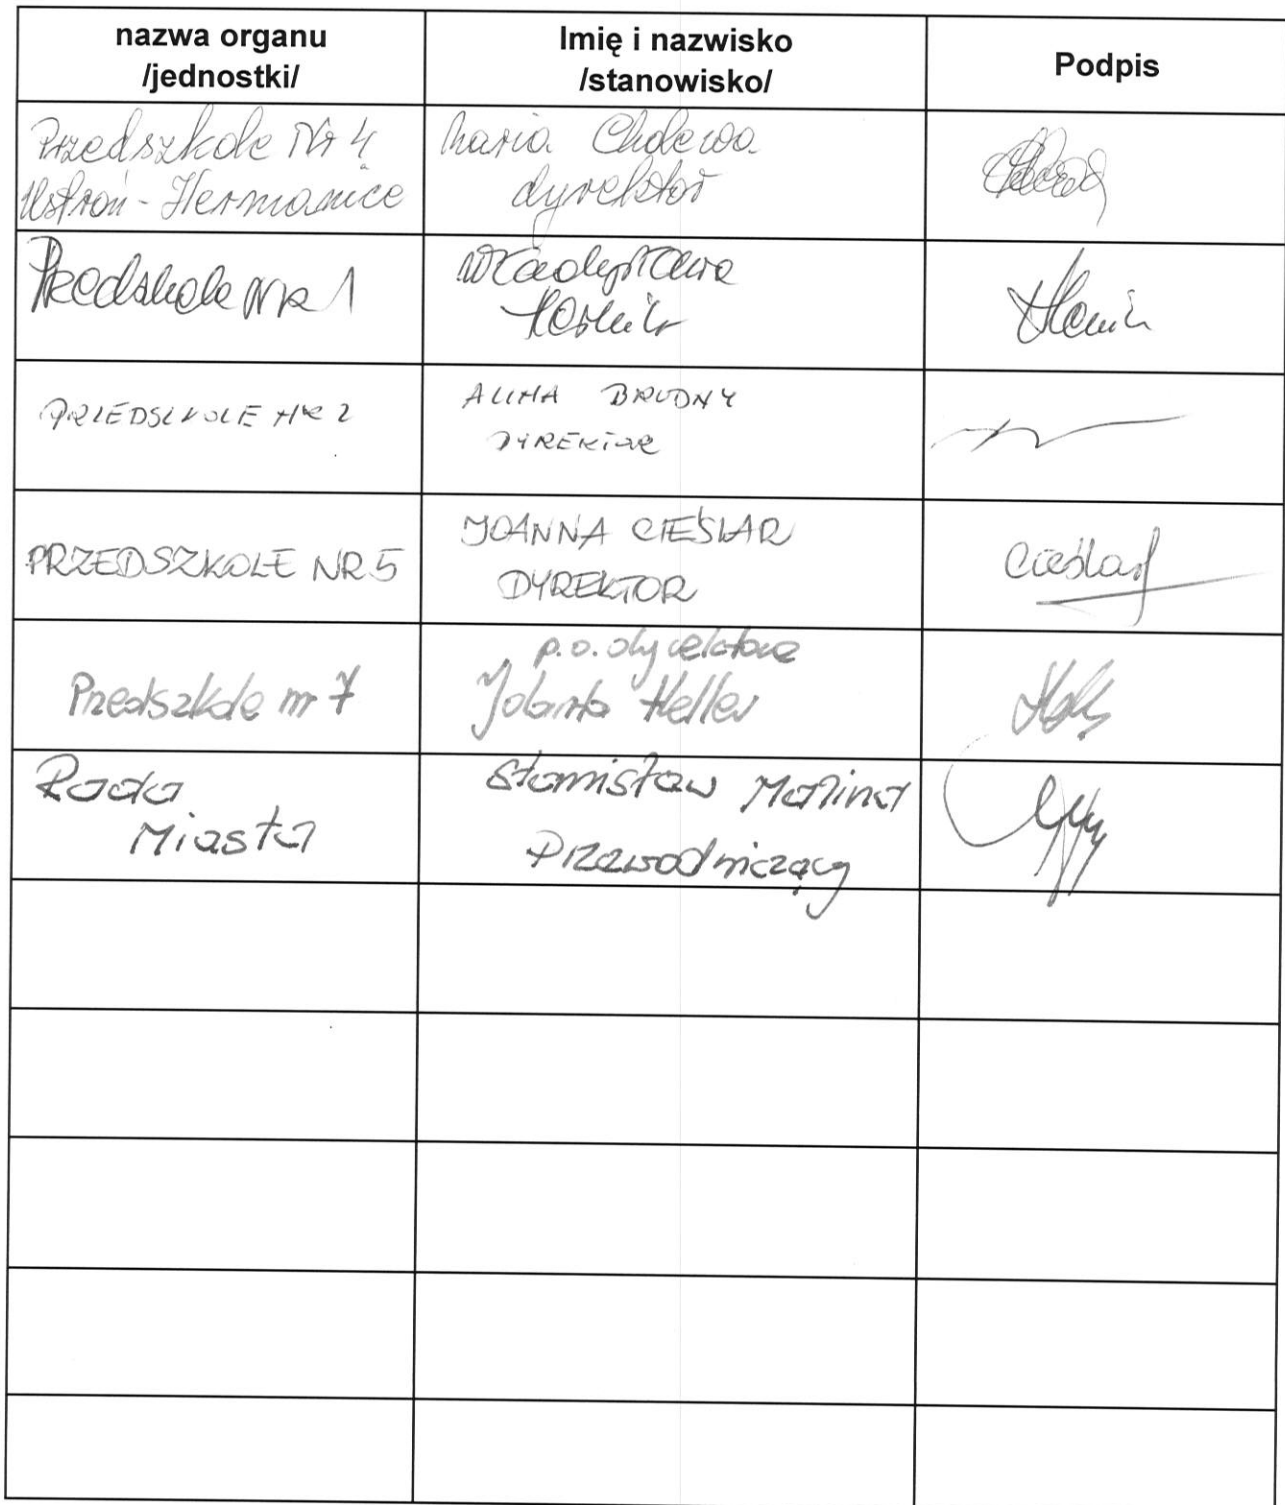 nazwa organu
/jednostki/
Imię i nazwisko
/stanowisko/
Podpis
Przedszkole Nr 4
Ustroń - Hermanice
Maria Cholewa
dyrektor
Przedszkole Nr 1
Władysława
PRZEDSZKOLE NR 2
ALINA BRUDNY
DYREKTOR
PRZEDSZKOLE NR 5
JOANNA CIEŚLAR
DYREKTOR
Cieślar
Przedszkole nr 7
p.o. dyrektora
Jolanta Heller
Rada
Miasta
Stanisław Malina
Przewodniczący